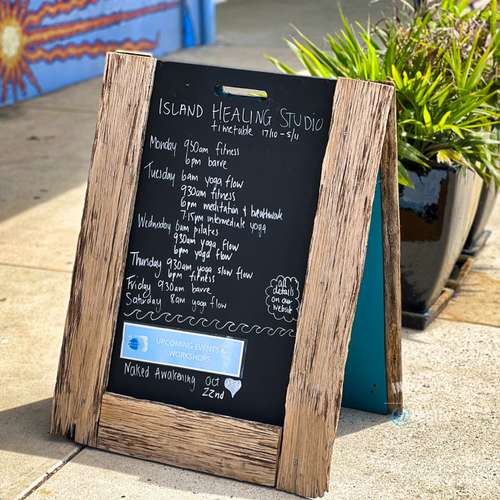 ISLAND HEALING STUDIO
timetable 17/10 - 5/11
Monday 930am fitness
6pm barre
Tuesday 6am yoga flow
930am fitness
6pm meditation & breathwork
7:15pm intermediate yoga
Wednesday 6am pilates
930am yoga flow
6pm yoga flow
Thursday 930am yoga slow flow
6pm fitness
Friday 930am barre
Saturday 8am yoga flow
all
details
on our
website
UPCOMING EVENTS &
WORKSHOPS
Naked Awakening Oct
22nd